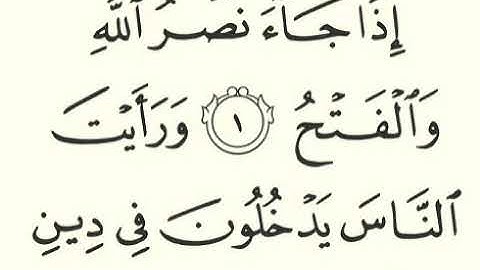 إِذَا جَاءَ نَصْرُ اللَّهِ
وَٱلْفَتْحُ ١ وَرَأَيْتَ
ٱلنَّاسَ يَدْخُلُونَ فِي دِينِ